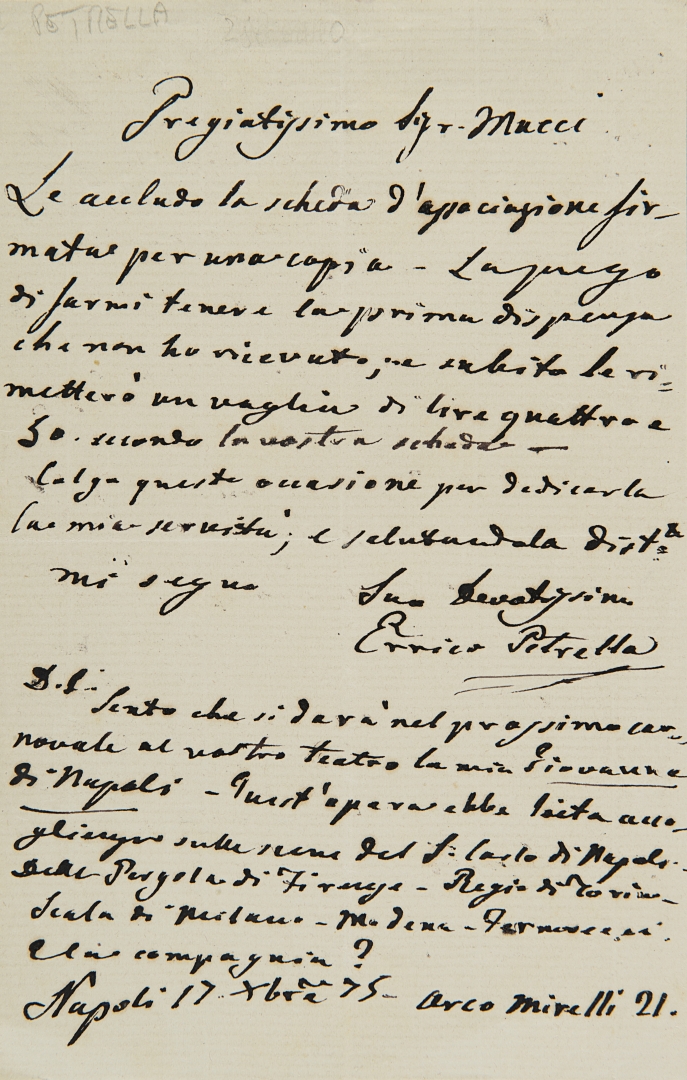 PETRELLA
Pregiatissimo Sigr. Mucci
Le accludo la scheda d'associazione fir-
mata per una copia - La prego
di farmi tenere la prima dispensa
che non ho ricevuto; e subito le ri=
metterò un vaglia di lire quattro e
50. secondo la vostra scheda -
Colgo questa occasione per dedicarla
la mia servitù; e salutandola distte
mi segno
Suo Devotissimo
Errico Petrella
Sento che si darà nel prossimo car-
novale al vostro teatro la mia Giovanna
di Napoli - Quest'opera ebbe lieta acco-
glienza sulle scene del S. Carlo di Napoli -
Della Pergola di Firenze - Regio di Torino -
Scala di Milano - Modena -
E la compagnia?
Napoli 17 Xbre 75 - Arco Mirelli 21.